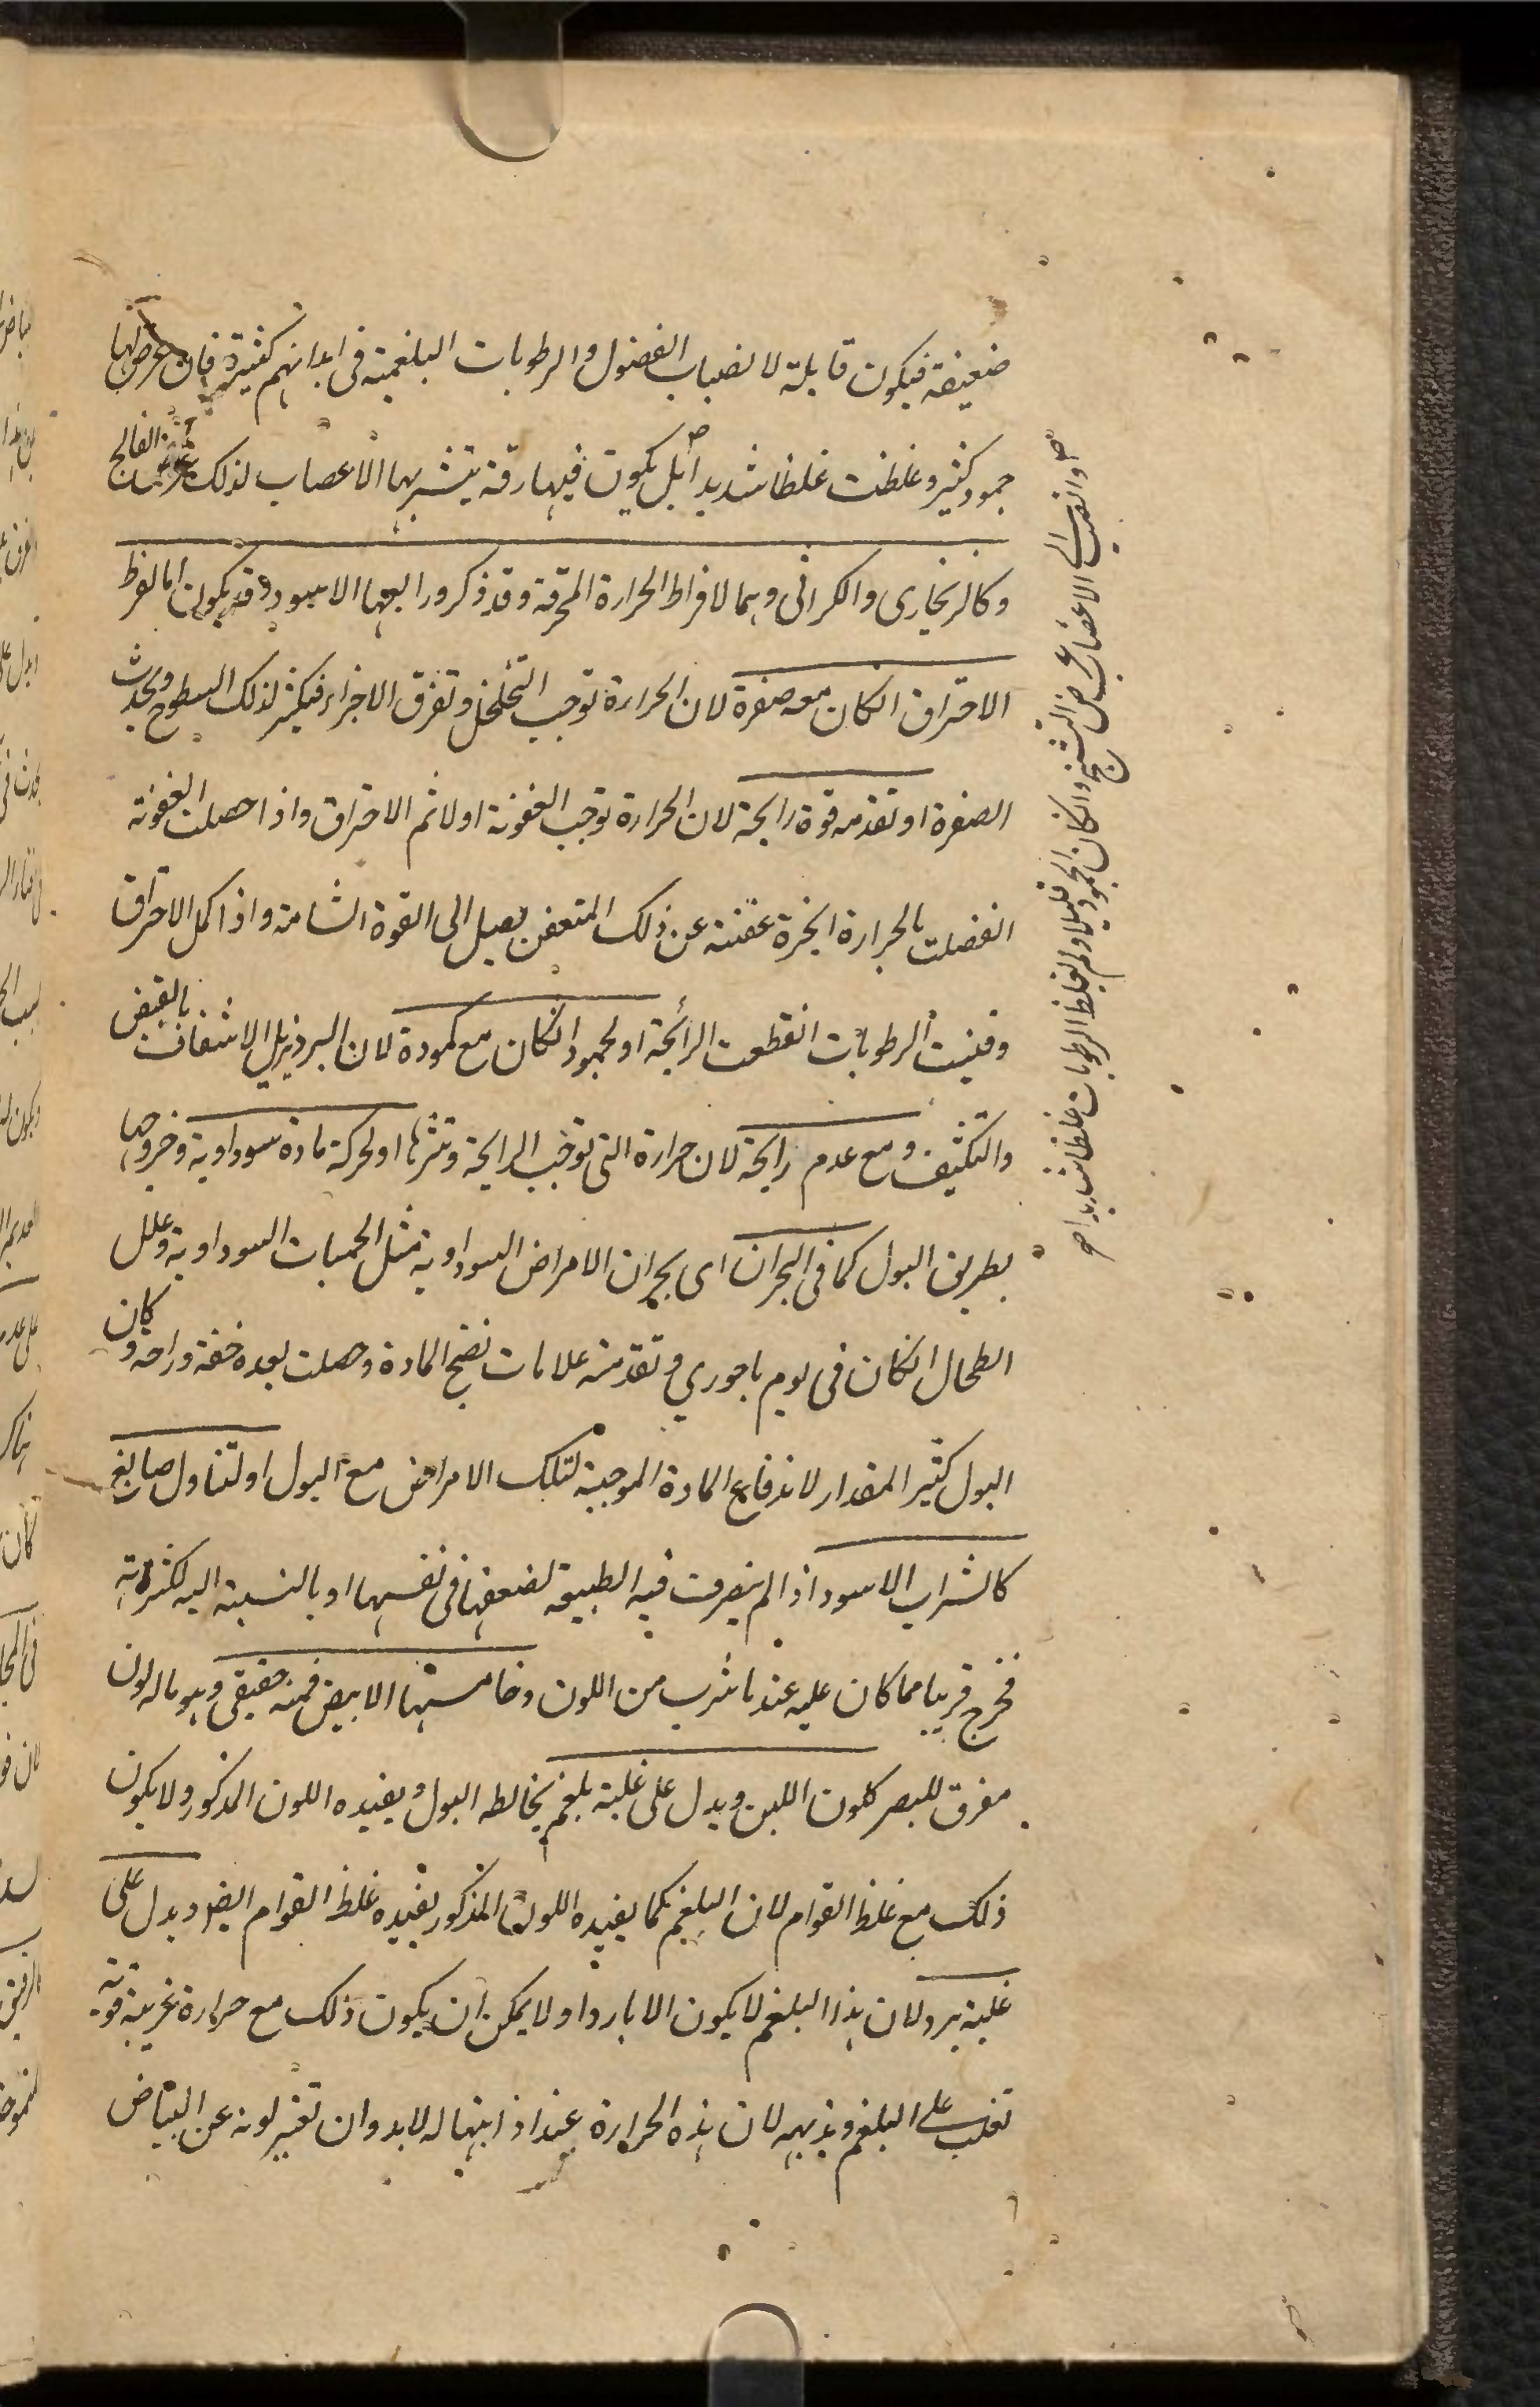 ضعيفة فيكون قابلة لانصباب الفضول والرطوبات البلغمية فى ابدانهم كثيرة فان عرض لها
جمود كثير وغلظت غلظا شديدا بل يكون فيها رقة يتشربها الاعصاب لذلك عرض الفالج
وكالزنجارى والكراثى وهما لافراط الحرارة المحرقة وقد ذكر ورابعها الاسود وقد يكون اما لفرط
الاحتراق انكان معه صفرة لان الحرارة توجب التخلخل وتفرق الاجزاء فيكثر لذلك السطوح ويحدث
الصفرة او تقدمه قوة رايحة لان الحرارة توجب العفونة اولا ثم الاحتراق واذا حصلت العفونة
انفصلت بالحرارة ابخرة عفنة عن ذلك المتعفن يصل الى القوة الشامة واذا كمل الاحتراق
وفنيت الرطوبات انقطعت الرائحة او لجمود انكان مع كمودة لان البرد يزيل الاشفاف بالقبض
والتكثيف ومع عدم رايحة لان حرارة التى توجب الرايحة وتنثرها او لحركة مادة سوداوية وخروجها
بطريق البول كما فى البحران اى بحران الامراض السوداوية مثل الحميات السوداوية وعلل
الطحال انكان فى يوم باحورى وتقدمته علامات نضج المادة وحصلت بعده خفة وراحة وكان
البول كثير المقدار لاندفاع المادة الموجبة لتلك الامراض مع البول او لتناول صابغ
كالشراب الاسود اذا لم يتصرف فيه الطبيعة لضعفها فى نفسها او بالنسبة اليه لكثرته
فخرج قريبا مما كان عليه عند ما شرب من اللون وخامستها الابيض فمنه حقيقى وهو ما له لون
مفرق للبصر كلون اللبن ويدل على غلبة بلغم يخالطه البول ويفيده اللون المذكور ولا يكون
ذلك مع غلظ القوام لان البلغم كما يفيده اللون المذكور يفيده غلظ القوام ايضا ويدل على
غلبة برد لان هذا البلغم لا يكون الا باردا ولا يمكن ان يكون ذلك مع حرارة غريبة قوية
تغلب على البلغم وتذيبه لان هذه الحرارة عند اذابتها له لابد وان تغير لونه عن البياض
وانصبت الى الاعضاء عرض التشنج وانكان الجمود قليلا ولم يغلظ الرطوبات غلظا شديدا صح